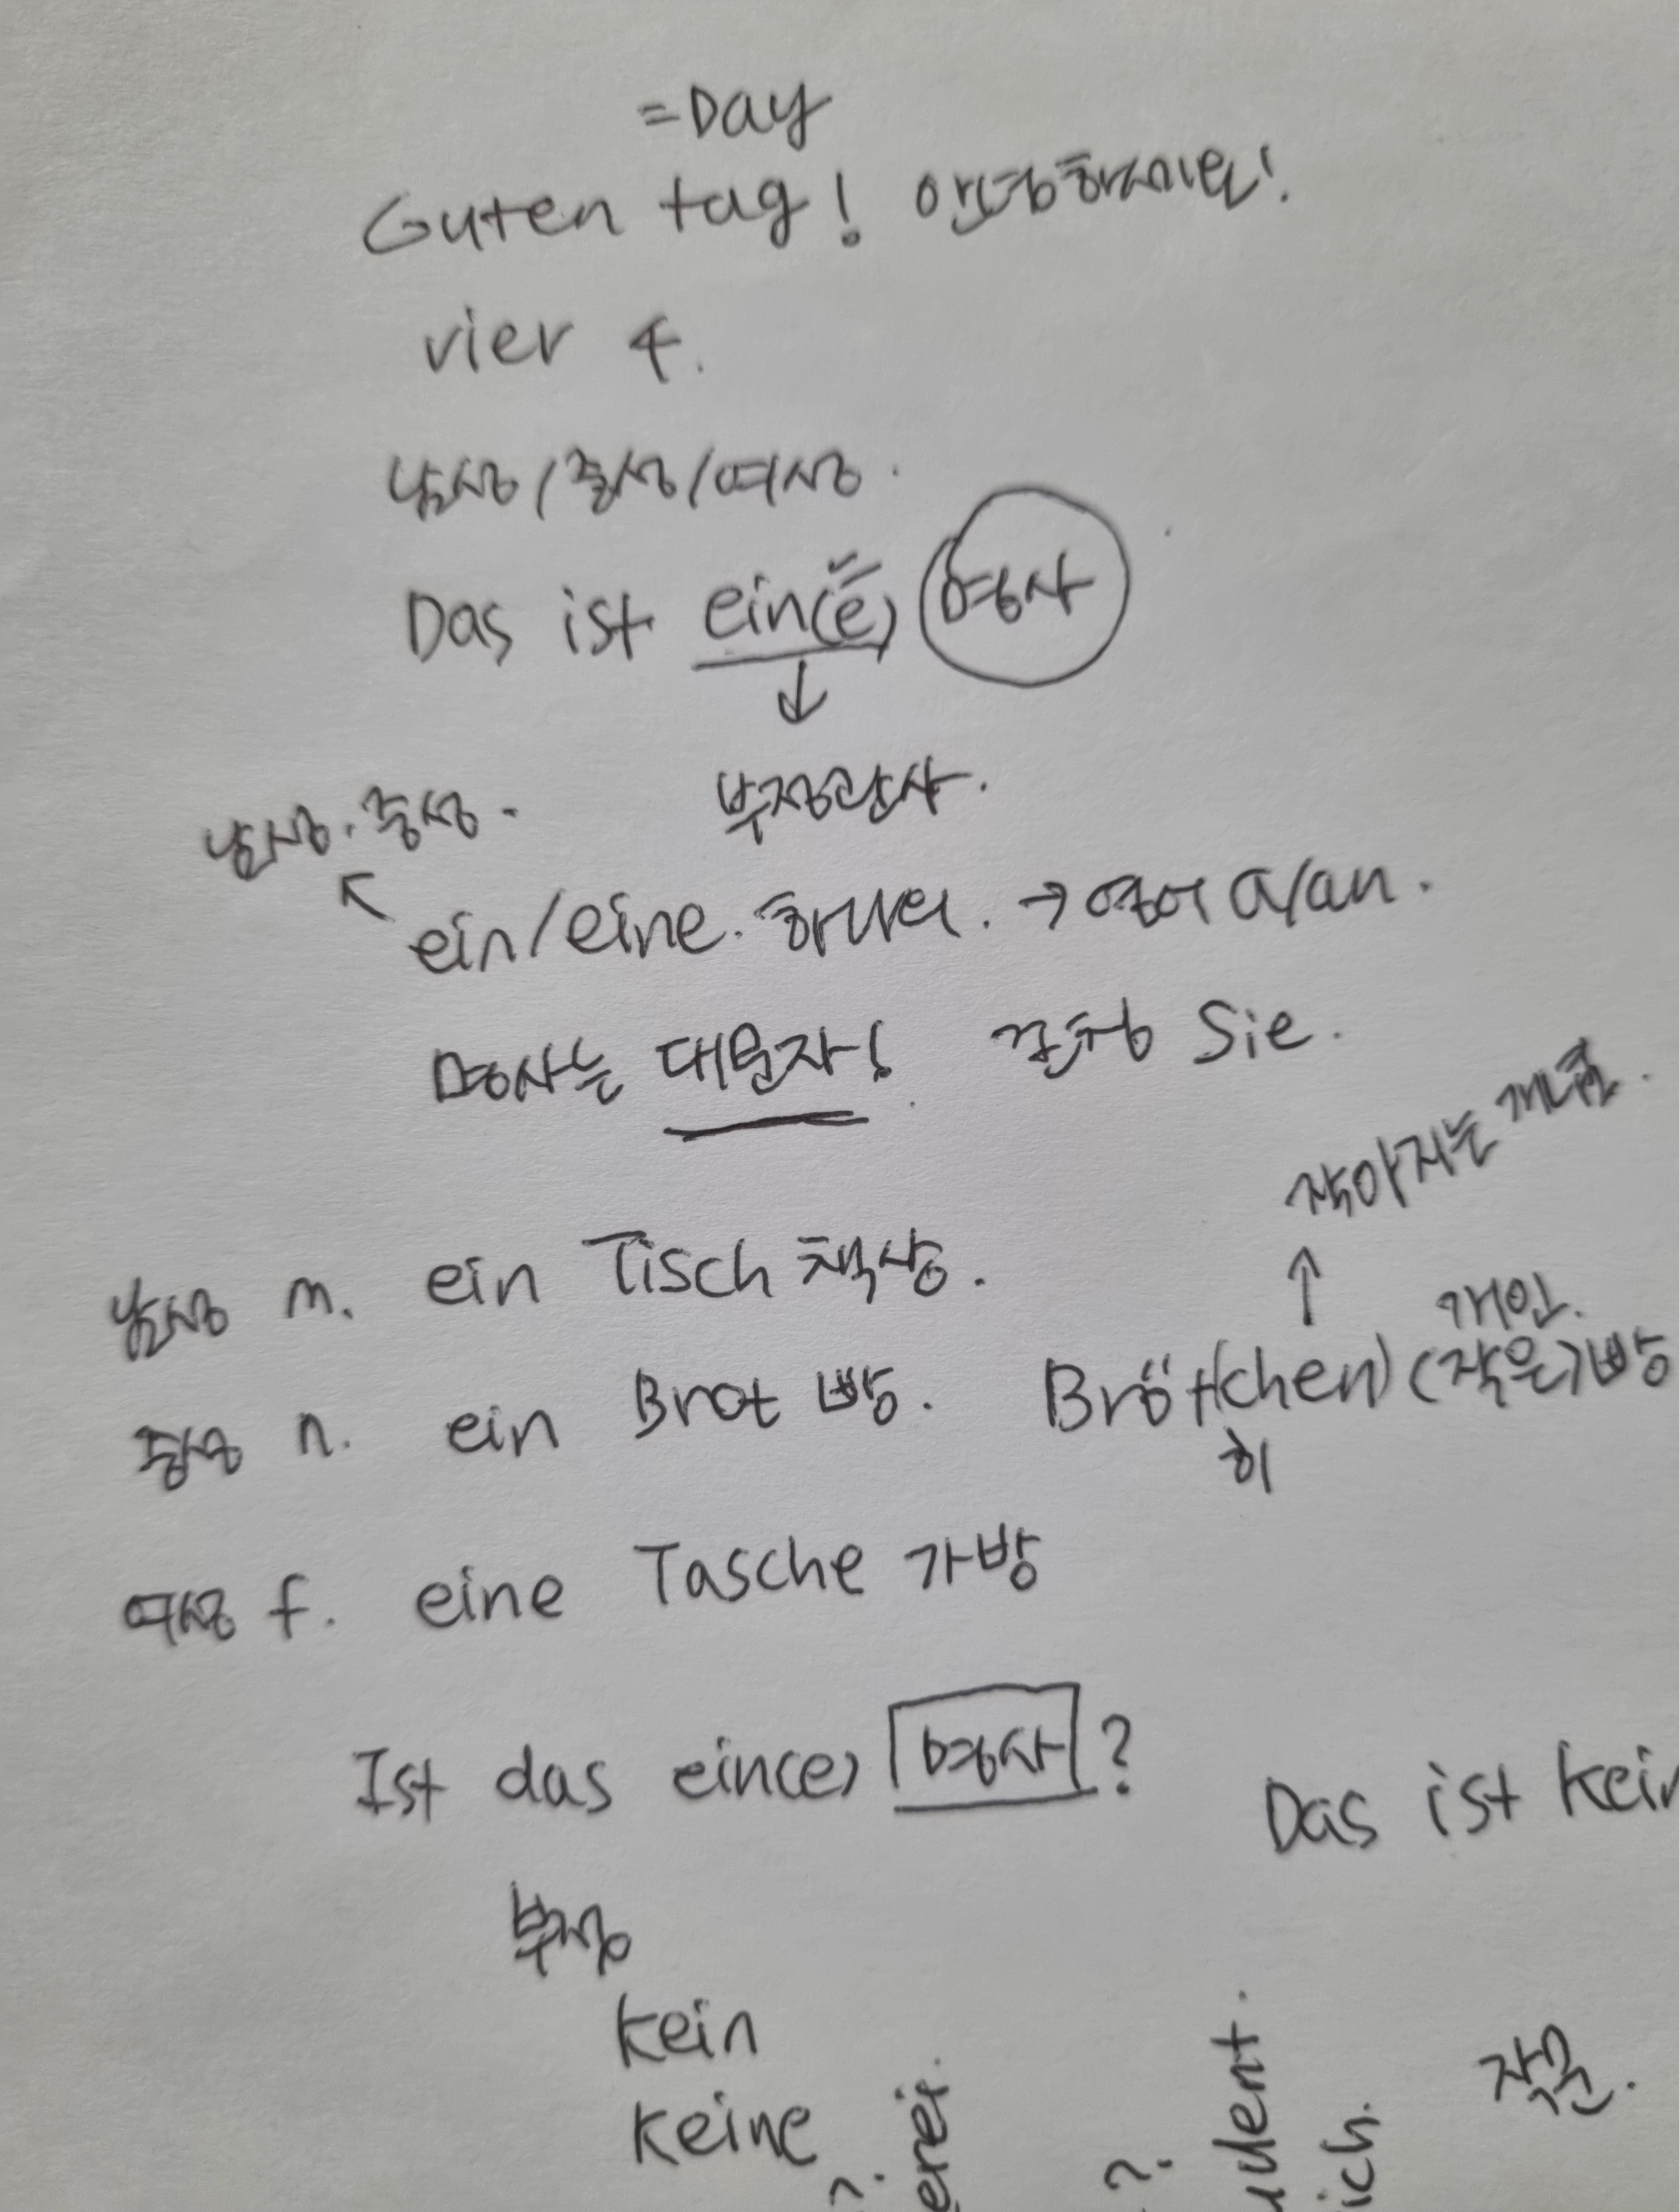 =Day
Guten tag! 안녕하세요!
vier 4.
남성/중성/여성.
Das ist ein(e) 명사
↓
남성. 중성. 부정관사.
ein/eine. 하나의. → 영어 a/an.
명사는 대문자! 존칭 Sie.
작아지는 개념.
남성 m. ein Tisch 책상.
↑ 개인.
중성 n. ein Brot 빵. Bröt(chen) (작은)빵
히
여성 f. eine Tasche 가방
Ist das ein(e) 명사?
Das ist kein
부정
kein
keine
작문.